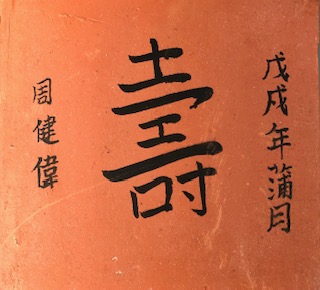 戊戌年蒲月
壽
周健偉